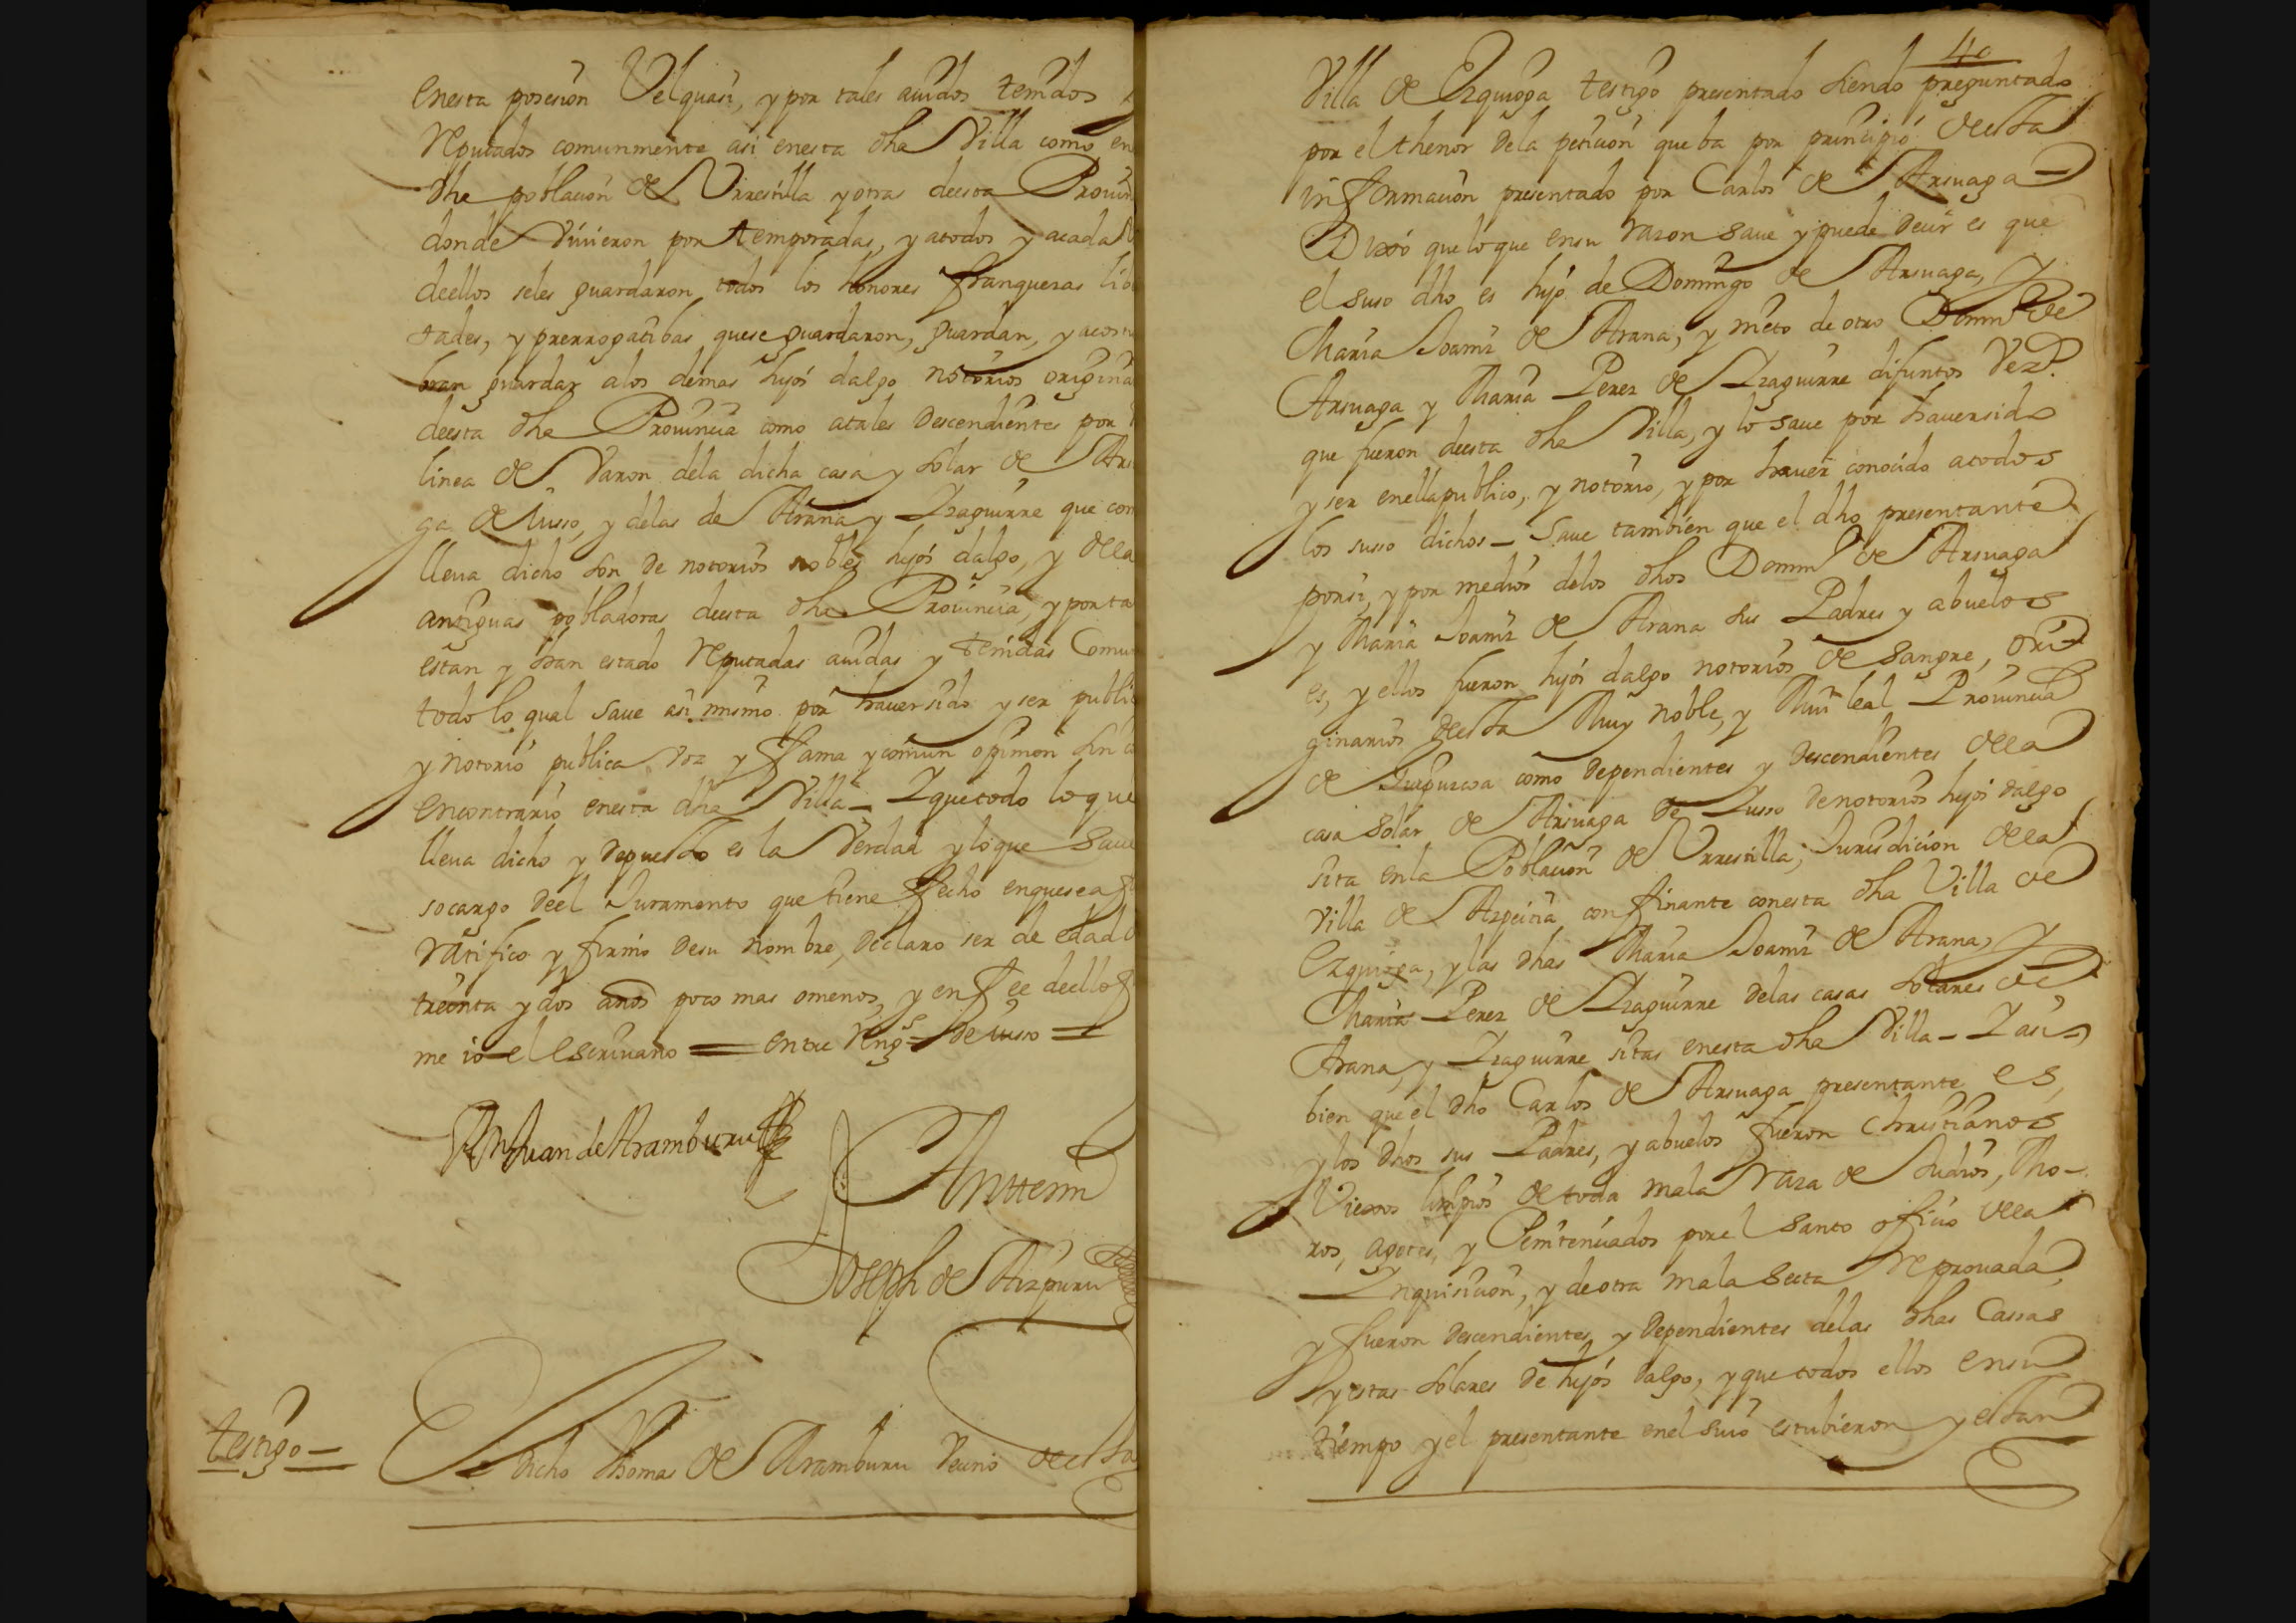 enesta posesion Velquasi, y por tales auidos tenidos
Reputados comunmente asi enesta dha Villa como en
dha poblacion de Vrrestilla y otras deesta Prouin
donde viuieron por temporadas, y atodos y acada
deellos seles guardaron todos los honores franquezas lib
tades, y prerrogatibas quese guardaron, guardan, y acost
bran guardar alos demas hijos dalgo notorios origina
deesta dha Prouincia como atales Descendientes por
linea de Varon dela dicha casa y solar de Arsu
ga de Iusso, y delas de Arana y Yzaguirre que con
lleua dicho son de notorios nobles hijos dalgo, y dela
antiguas pobladoras deesta dha Prouincia, y por ta
estan y han estado Reputadas auidas y tenidas Comun
todo lo qual saue asi mismo por hauersido y ser public
y notorio publica voz y fama y comun opinion sin co
encontrario enesta dha Villa – Y que todo lo que
lleua dicho y depuesto es la Verdad y loque saue
socargo deel Juramento que tiene fecho enquese a
Ratifico y firmo desu nombre, declaro ser de edad
treinta y dos años poco mas omenos, y en fee deello
me io el escriuano = entre Reng.s = de iusso =
Juan de Aramburu
Anttemi
Joseph de Aizpuru
testigo –
El dicho Thomas de Aramburu Vecino deesta
40
Villa de Ezquioga testigo presentado siendo preguntado
por el thenor dela peticion que ba por principio deesta
informacion presentado por Carlos de Arsuaga –
Dixo que lo que ensu razon saue y puede decir es que
el suso dho es hijo de Domingo de Arsuaga, y
Maria Joaniz de Arana, y nieto de otro Domingo de
Arsuaga y Maria Perez de Yzaguirre difuntos Vez.s
que fueron deesta dha Villa, y lo saue por hauersido
y ser enella publico, y notorio, y por hauer conocido atodos
los suso dichos – Saue tambien que el dho presentante
porsi, y por medios delos dhos Domingo de Arsuaga
y Maria Joaniz de Arana sus Padres y abuelos
es, y ellos fueron hijos dalgo notorios de sangre, ori
ginarios deesta Muy noble, y Mui leal Prouincia
de Guipuzcoa como dependientes y Descendientes dela
casa solar de Arsuaga de Yusso denotorios hijos dalgo
sita enla Poblacion de Vrrestilla, Jurisdicion dela
Villa de Azpeitia confinante conesta dha Villa de
Ezquioga, y las dhas Maria Joaniz de Arana, y
Maria Perez de Yzaguirre delas casas solares de
Arana, y Yzaguirre sitas enesta dha Villa – Y asi
bien que el dho Carlos de Arsuaga presentante es,
y los dhos sus Padres, y abuelos fueron christianos
Viexos limpios de toda mala raza de Judios, Mo-
ros, agotes, y Penitenciados porel santo oficio dela
Ynquisicion, y de otra mala secta reprouada,
y fueron descendientes y dependientes dellas dhas Cassas
y estas solares de hijos dalgo, y que todos ellos ensu
tiempo y el presentante enel suio estubieron y estan